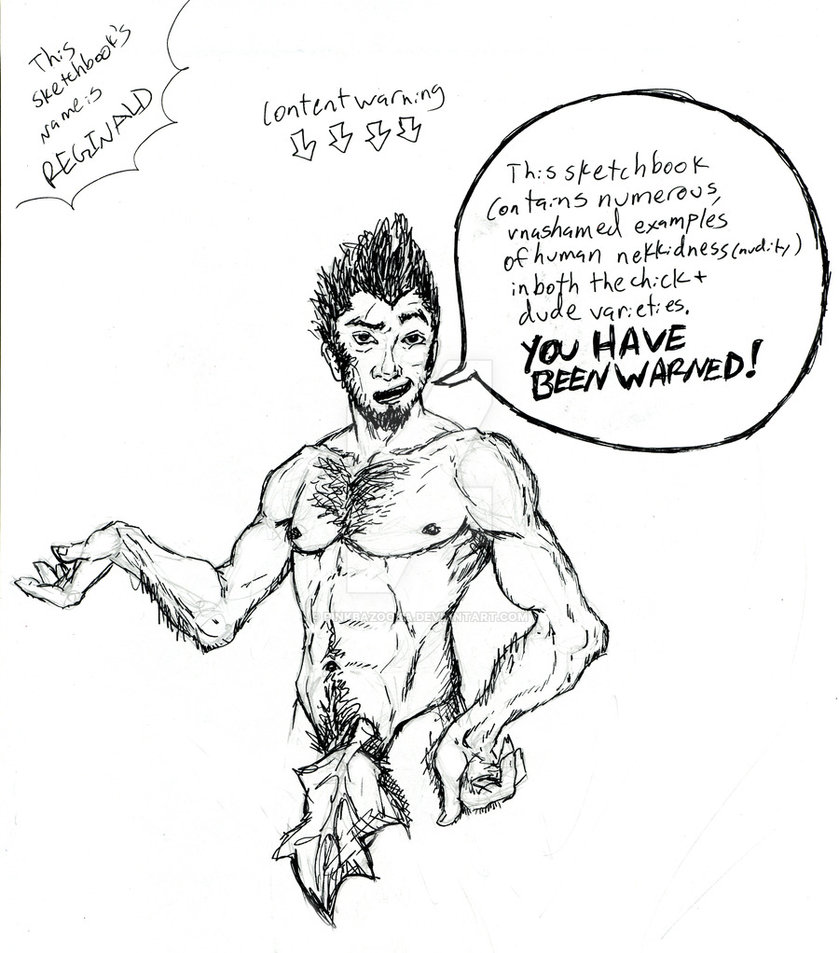 This
sketchbook's
name is
REGINALD
Content warning
This sketchbook
contains numerous,
unashamed examples
of human nekkidness (nudity)
in both the chick +
dude varieties.
YOU HAVE
BEEN WARNED!